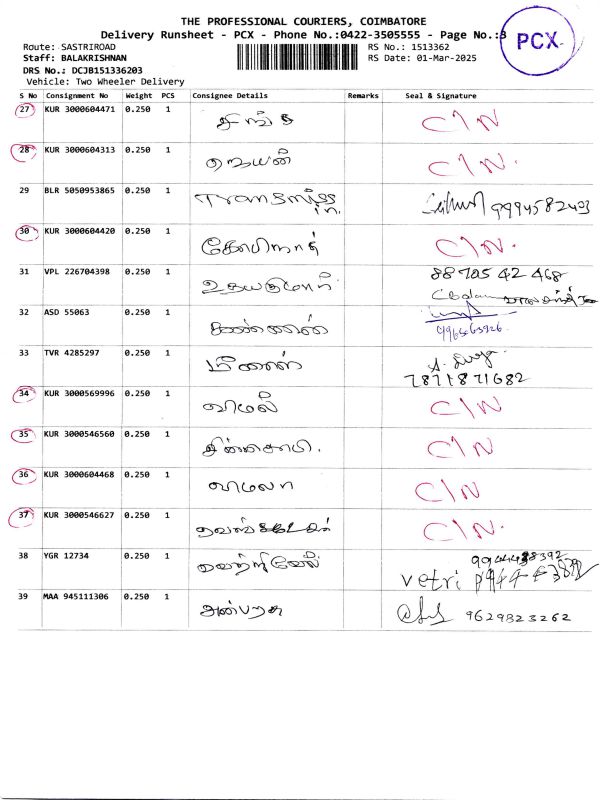 THE PROFESSIONAL COURIERS, COIMBATORE
Delivery Runsheet - PCX - Phone No.:0422-3505555 - Page No.:3
PCX
Route: SASTRIROAD RS No.: 1513362
Staff: BALAKRISHNAN RS Date: 01-Mar-2025
DRS No.: DCJB151336203
Vehicle: Two Wheeler Delivery
S No Consignment No Weight PCS Consignee Details Remarks Seal & Signature
27 KUR 3000604471 0.250 1 C/N
28 KUR 3000604313 0.250 1 C/N.
29 BLR 5050953865 0.250 1
30 KUR 3000604420 0.250 1 கோபிநாத் C/N.
31 VPL 226704398 0.250 1 88705 42 468
32 ASD 55063 0.250 1 கண்ணன்
33 TVR 4285297 0.250 1 7871871682
34 KUR 3000569996 0.250 1 விமல் C/N
35 KUR 3000546560 0.250 1 C/N
36 KUR 3000604468 0.250 1 விமலா C/N
37 KUR 3000546627 0.250 1 C/N.
38 YGR 12734 0.250 1 வெற்றிவேல் Vetri
39 MAA 945111306 0.250 1 அன்பரசு 9629823262